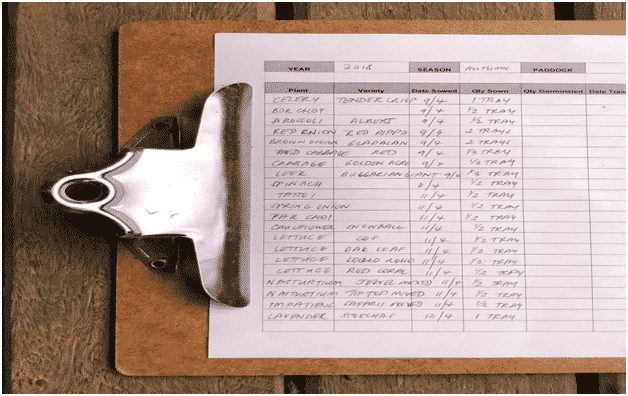 YEAR 2018 SEASON AUTUMN PADDOCK
Plant Variety Date Sowed Qty Sown Qty Germinated Date Tran
CELERY TENDER CRISP 9/4 1 TRAY
BOK CHOY 9/4 1/2 TRAY
BROCCOLI ALBERT 9/4 1/2 TRAY
RED ONION RED 9/4 2 TRAYS
BROWN ONION GLADALAN 9/4 2 TRAYS
RED CABBAGE RED 9/4 1/3 TRAY
CABBAGE GOLDEN ACRE 9/4 1/3 TRAY
LEEK BULGARIAN GIANT 9/4 1/3 TRAY
SPINACH 11/4 1/2 TRAY
TATSOI 11/4 1/2 TRAY
SPRING ONION 11/4 1/2 TRAY
PAK CHOI 11/4 1/2 TRAY
CAULIFLOWER SNOWBALL 11/4 1/2 TRAY
LETTUCE COS 11/4 1/2 TRAY
LETTUCE OAK LEAF 11/4 1/2 TRAY
LETTUCE 11/4 1/2 TRAY
LETTUCE RED CORAL 11/4 1/2 TRAY
NASTURTIUM JEWEL MIXED 11/4 1/2 TRAY
NASTURTIUM TIP TOP MIXED 11/4 1/2 TRAY
IMPATIENS SAFARII MIXED 11/4 1/2 TRAY
LAVENDER STOECHAS 12/4 1 TRAY